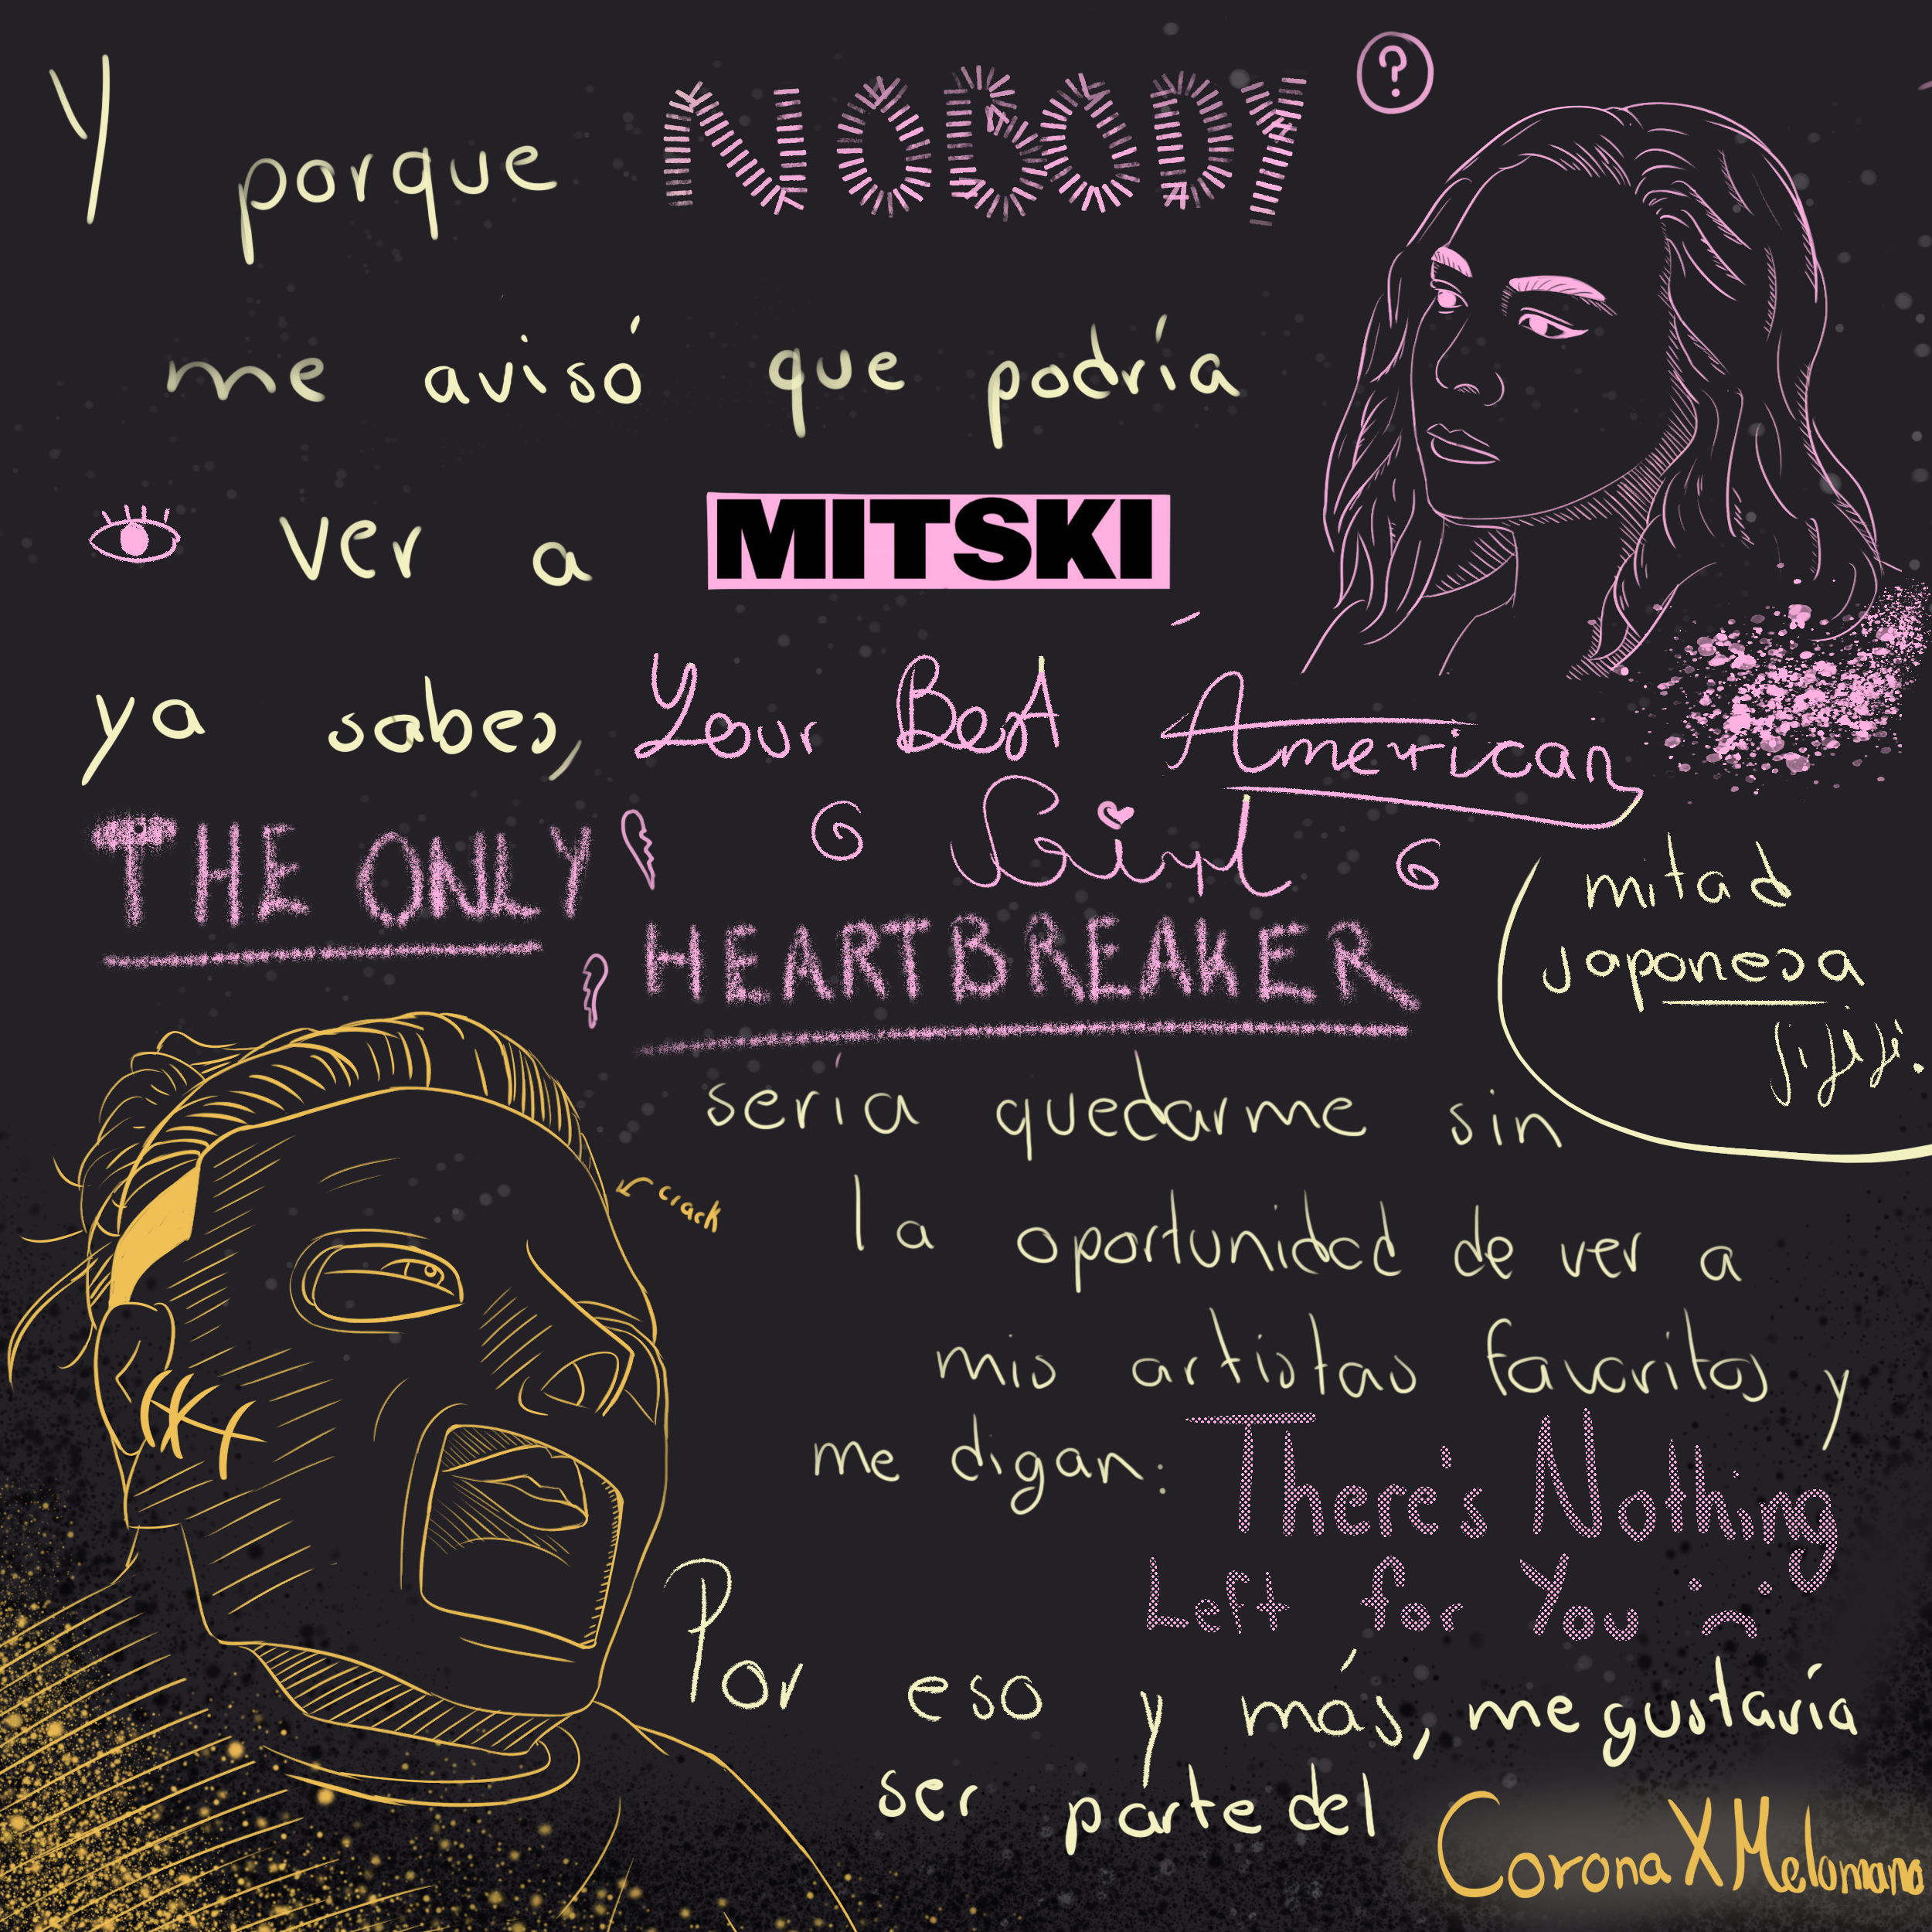 Y porque NOBODY ?
me avisó que podría
ver a MITSKI
ya sabes, Your Best American
Girl
THE ONLY
HEARTBREAKER
mitad
japonesa
jijiji.
sería quedarme sin
crack
la oportunidad de ver a
mis artistas favoritos y
me digan: There's Nothing
Left for You :(
Por eso y más, me gustaría
ser parte del Corona X Melomano